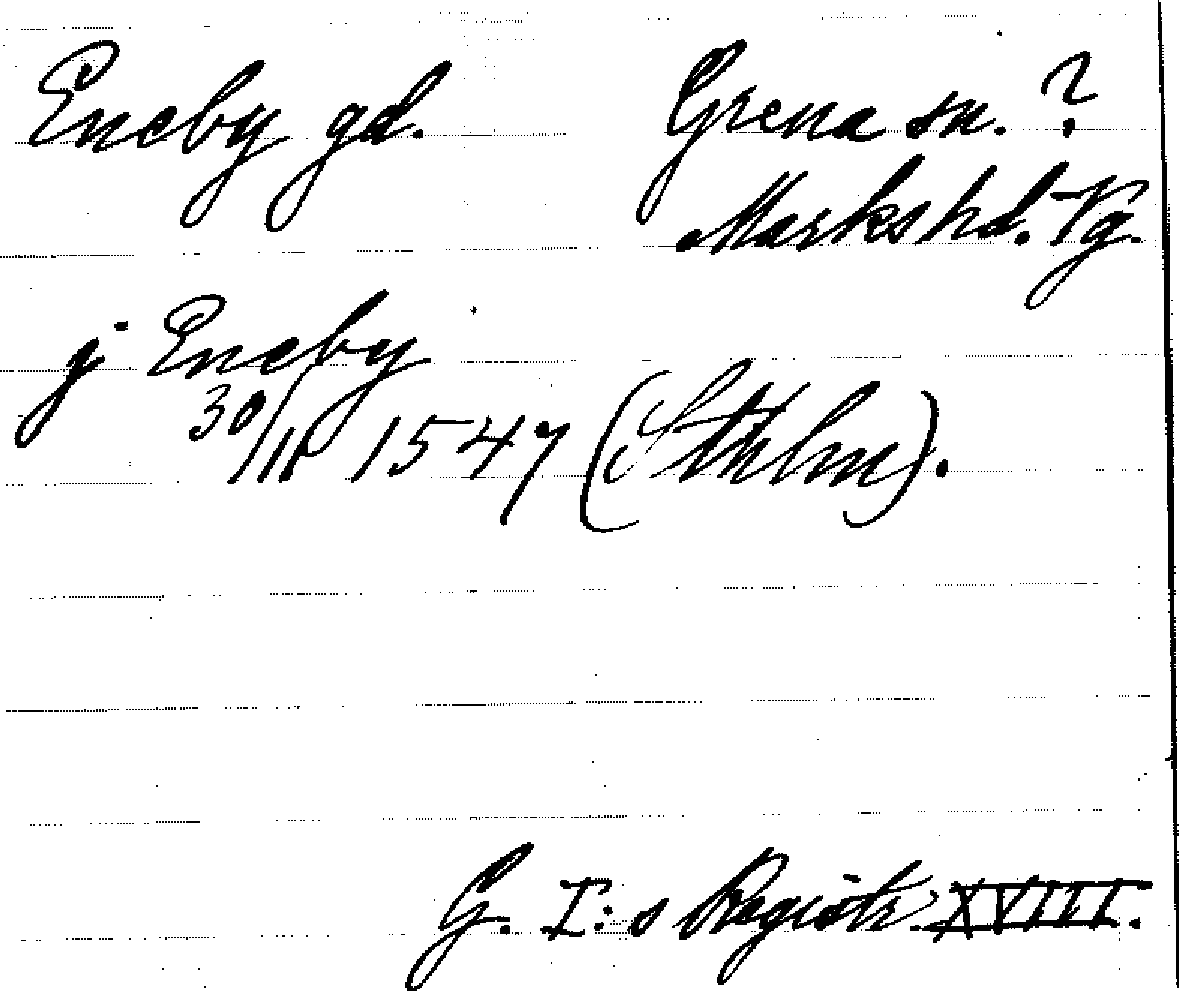 Eneby gd. Grena sn. ?
Marks hd. Vg.
j Eneby
30/11 1547 (Sthlm).
G. I:s Registr. XVIII.